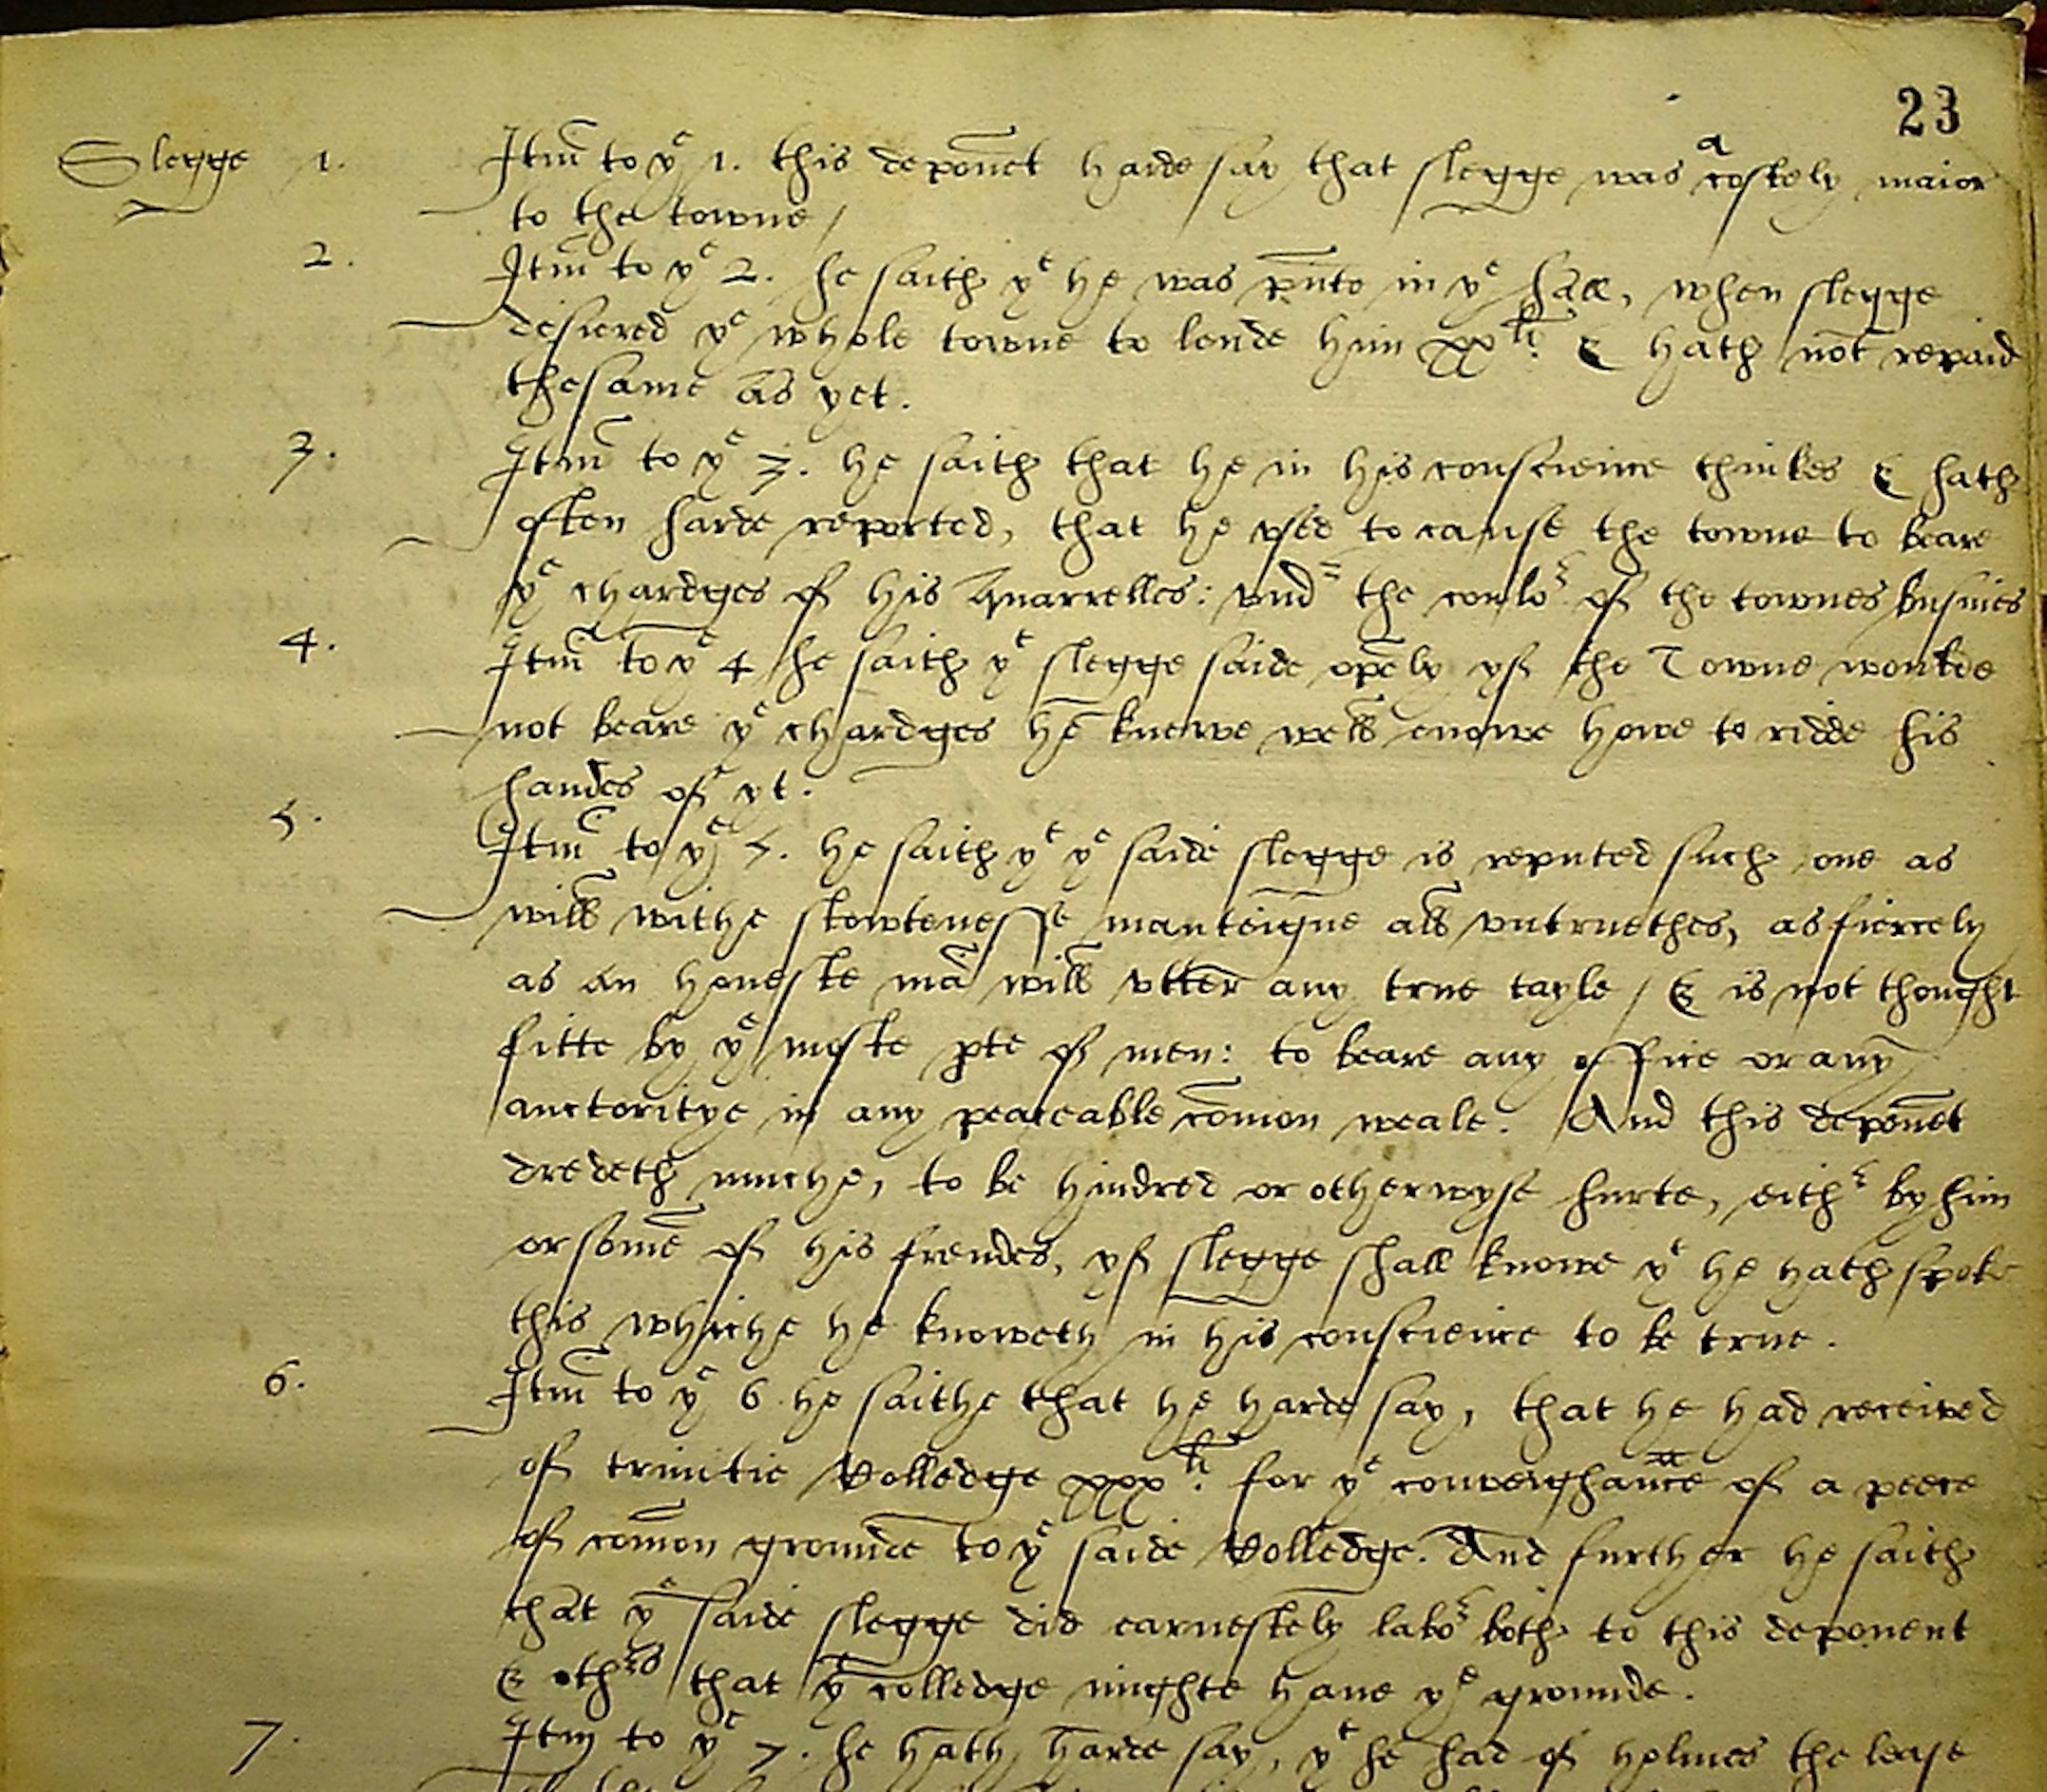 23
Slegge 1. Itm̄ to ye 1. this deponēt harde say that slegge was a costely maior
to the towne /
2. Itm̄ to ye 2. he saith yt he was p̄nte in ye hall, when slegge
desiered ye whole towne to lende him xxli. & hath not repaid
thesame as yet.
3. Itm̄ to ye 3. he saith that he in his conscience thinkes & hath
often harde reported, that he vsed to cause the towne to beare
ye chardges of his Quarrelles: vndr the coulor of the townes busines
4. Itm̄ to ye 4 he saith yt slegge saide opēly yf the Towne woulde
not beare ye chardges he knewe well enowe howe to ridde his
handes of yt.
5. Itm̄ to ye 5. he saith yt ye saide slegge is reputed such one as
will withe stowtenesse manteigne all vntruethes, as fiercely
as an honeste mā will vtter any true tayle / & is not thought
fitte by ye moste pte of men: to beare any office or any
auctoritye in any peaceable com̄on weale. And this deponēt
dredeth muche, to be hindred or otherwyse hurte, eithr by him
or some of his frendes, yf slegge shall knowe yt he hath spoke
this whiche he knoweth in his conscience to be true.
6. Itm̄ to ye 6 he saithe that he harde say, that he had received
of trinitie Colledge xxxli. for ye conveighaunce of a peece
of com̄on grounde to ye saide Colledge. And further he saith
that ye saide slegge did earnestely labor both to this deponent
& othrs that ye colledge mighte haue ye grounde.
7. Itm to ye 7. he hath harde say, yt he had of holmes the lease